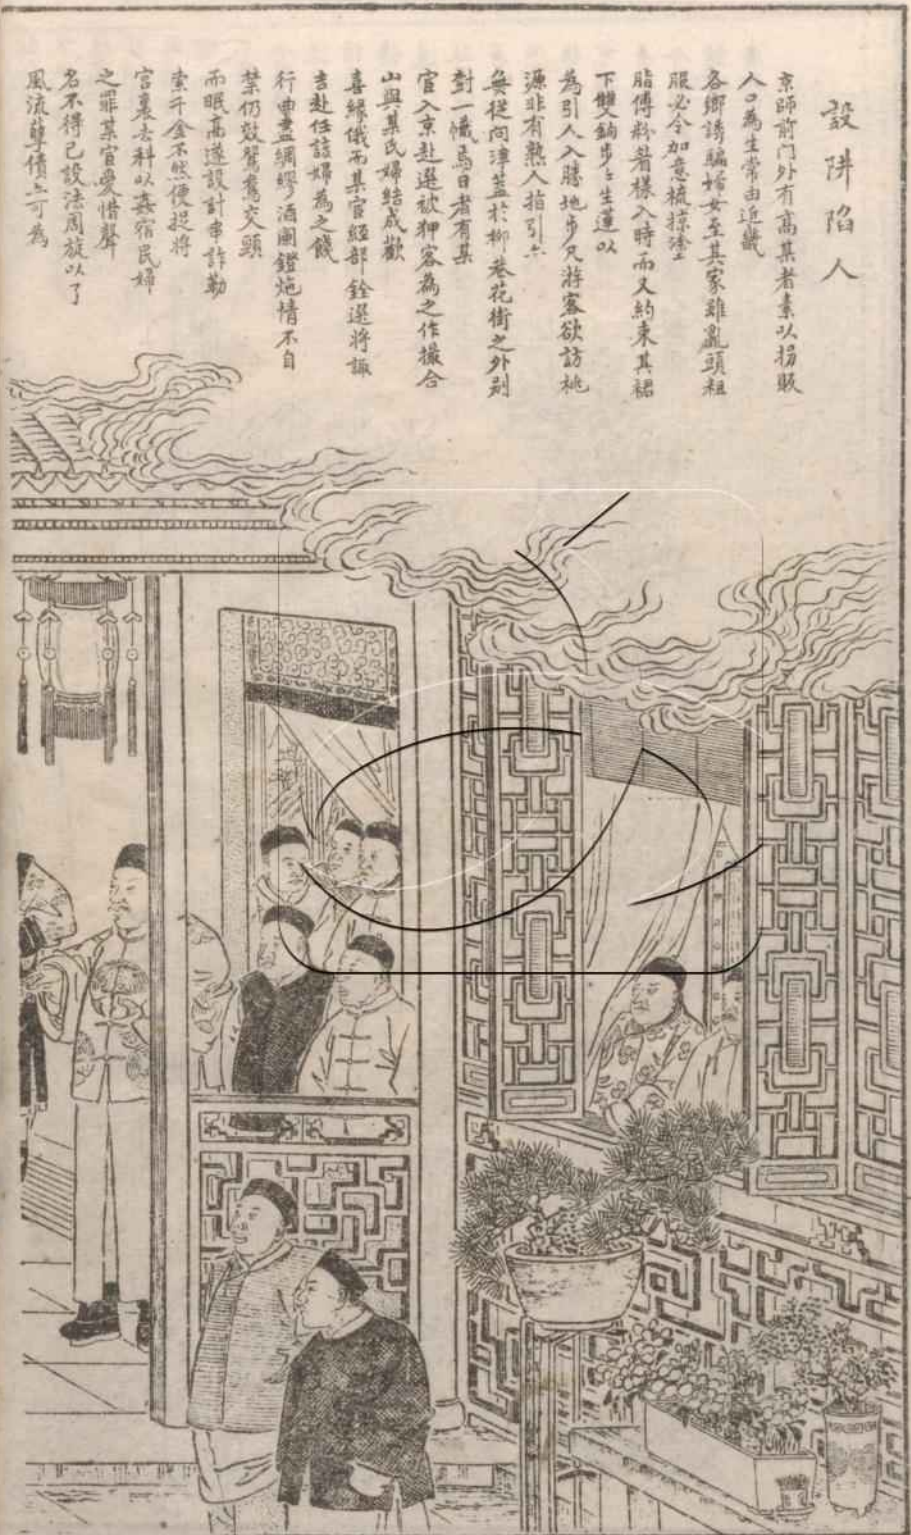 設阱陷人
京師前門外有高某者素以拐販
人口為生常由近畿
各鄉誘騙婦女至其家雖亂頭粗
服必令加意梳掠塗
脂傅粉着樣入時而又約束其裙
下雙鈎步步生蓮以
為引人入勝地步凡游客欲訪桃
源非有熟人指引亦
無從問津蓋於柳巷花街之外別
封一幟焉日者有某
官入京赴選被狎客為之作撮合
山與某氏婦結成歡
喜緣俄而某官經部銓選將諏
吉赴任該婦為之餞
行曲盡綢繆酒闌鐙灺情不自
禁仍效鴛鴦交頸
而眠高遂設計串詐勒
索千金不然便捉將
官裏去科以姦宿民婦
之罪某官愛惜聲
名不得已設法周旋以了
風流孽債亦可為